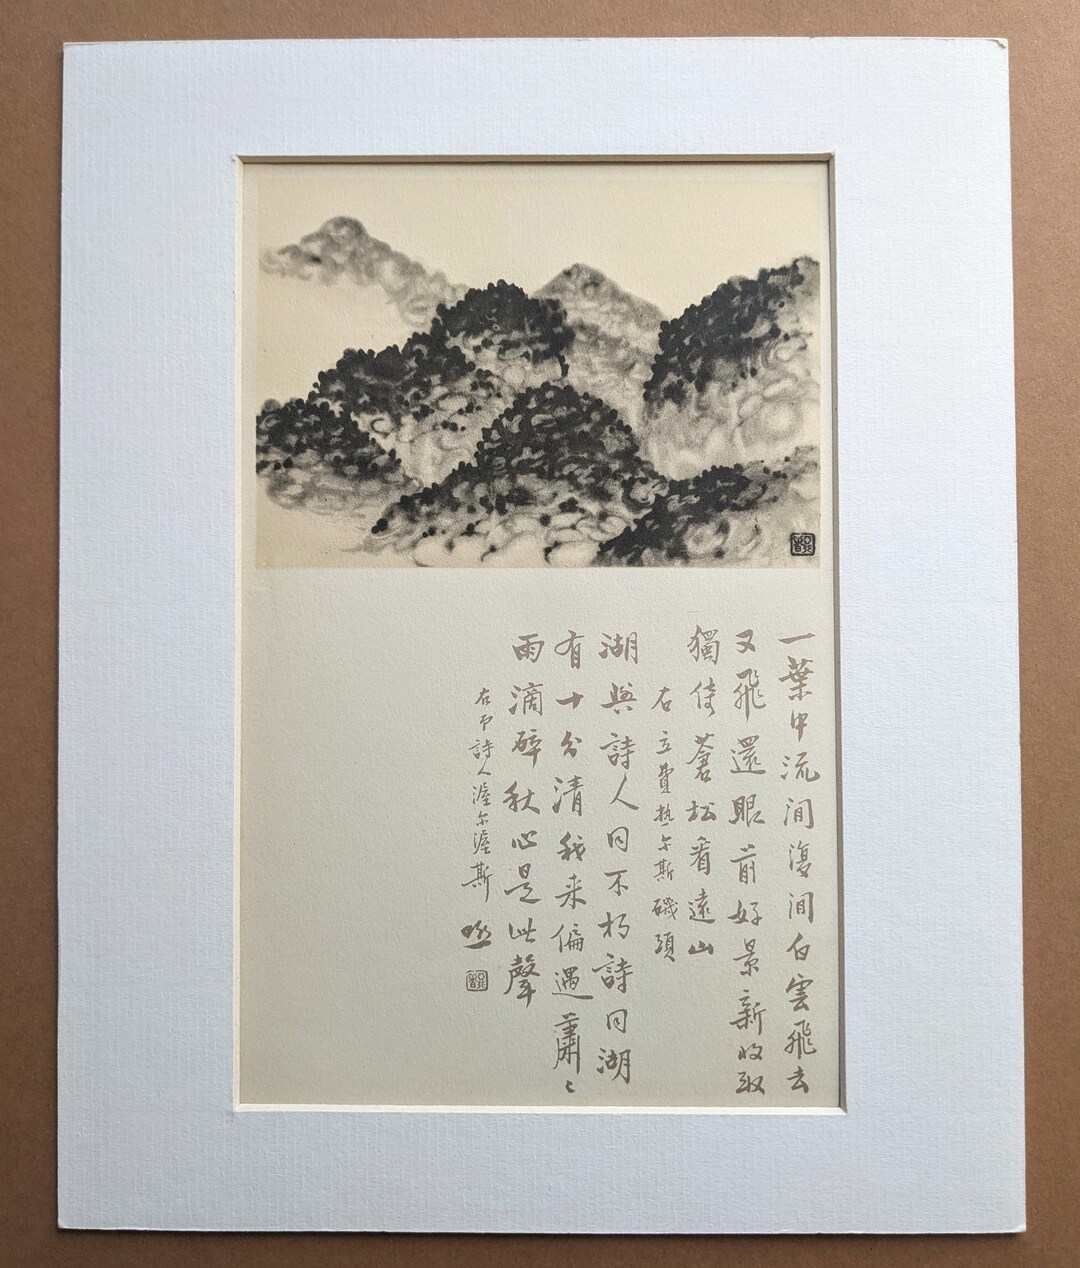 一葉中流澗復澗白雲飛去
又飛還眼前好景新收取
獨倚蒼松看遠山
右立費熱尔斯磯頭
湖與詩人同不朽詩同湖
有十分清我来偏遇蕭〻
雨滴碎秋心是此聲
右弔詩人渥尔渥斯